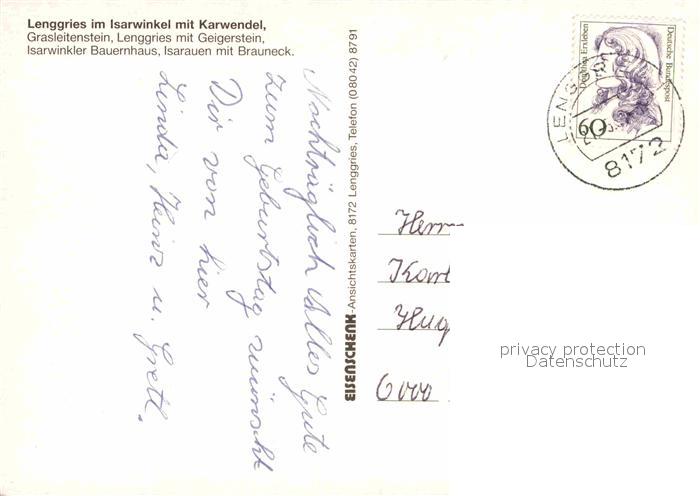 Lenggries im Isarwinkel mit Karwendel,
Grasleitenstein, Lenggries mit Geigerstein,
Isarwinkler Bauernhaus, Isarauen mit Brauneck.
Nachträglich Alles Gute
zum Geburtstag wünscht
Dir von hier
Linda, Heinz u. Gretl.
EISENSCHENK-Ansichtskarten, 8172 Lenggries, Telefon (08042) 8791
Dorothea Erxleben
Deutsche Bundespost
60
LENG
8172
Herrn
Karl
Hug
6000
privacy protection
Datenschutz